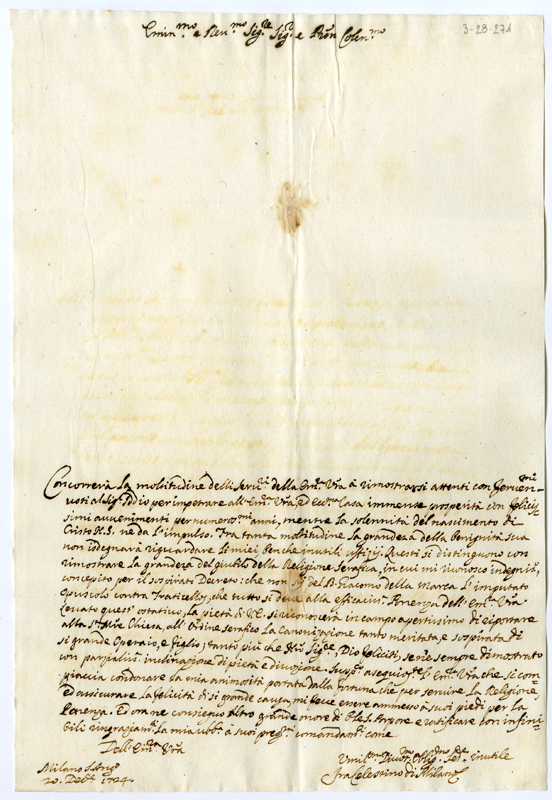 3-28-271
Emin.mo e Rev.mo Sig.re Sig.r e Pron Colen.mo
Concorrerà la moltitudine delli Servi della Em.a Vra à rimostrarsi attenti con ferven.mi
voti al Sig.r Iddio per impetrare all'Em.a Vra, ed Ecc.ma Casa immense prosperità con felicis=
simi avvenimenti per numeros.mi anni, mentre la solennità del nascimento di
Cristo N.S. ne dà l'impulso. Fra tanta moltitudine la grandezza della Benignità sua
non isdegnarà riguardare li miei benche inutili uffizij. Questi si distinguono con
rimostrare la grandezza del giubilo della Religione Serafica, in cui mi riconosco indegniss.o,
concepito per il sospirato Decreto; che non sij del B. Giacomo della Marca l'imputato
Opuscolo contra Fraticellos; che tutto si deve alla efficaciss.a Ponenza dell'Em.a Vra
Levato quest'ostativo, la pietà di V.E. si riconoscerà in campo apertissimo di riportare
alla S.ta Mre Chiesa, all'Ordine serafico la Canonizazione tanto meritata, e sospirata di
si grande Operaio, e figlio; tanto più che N.ro Sig.re, Dio feliciti, se n'è sempre dimostrato
con parzialiss.a inclinazione di pietà e divozione. Supp.co
l'Em.a Vra che si com=
piaccia condonare la mia animosità portata dalla fortuna che per servire la Religione,
ed assicurare la felicità di si grande causa, mi fece avere ammesso a suoi piedi per la
Ponenza. Ed ora ne conseguo altro
e ratificare con infini=
bili ringraziam.ti la mia
a suoi preg.mi comandam.ti come
Dell'Em.a Vra
Milano S. Ang.o
20. Dec.e 1724.
Umil.mo Divot.mo Obblig.mo Ser.re inutile
Fra Celestino di Milano